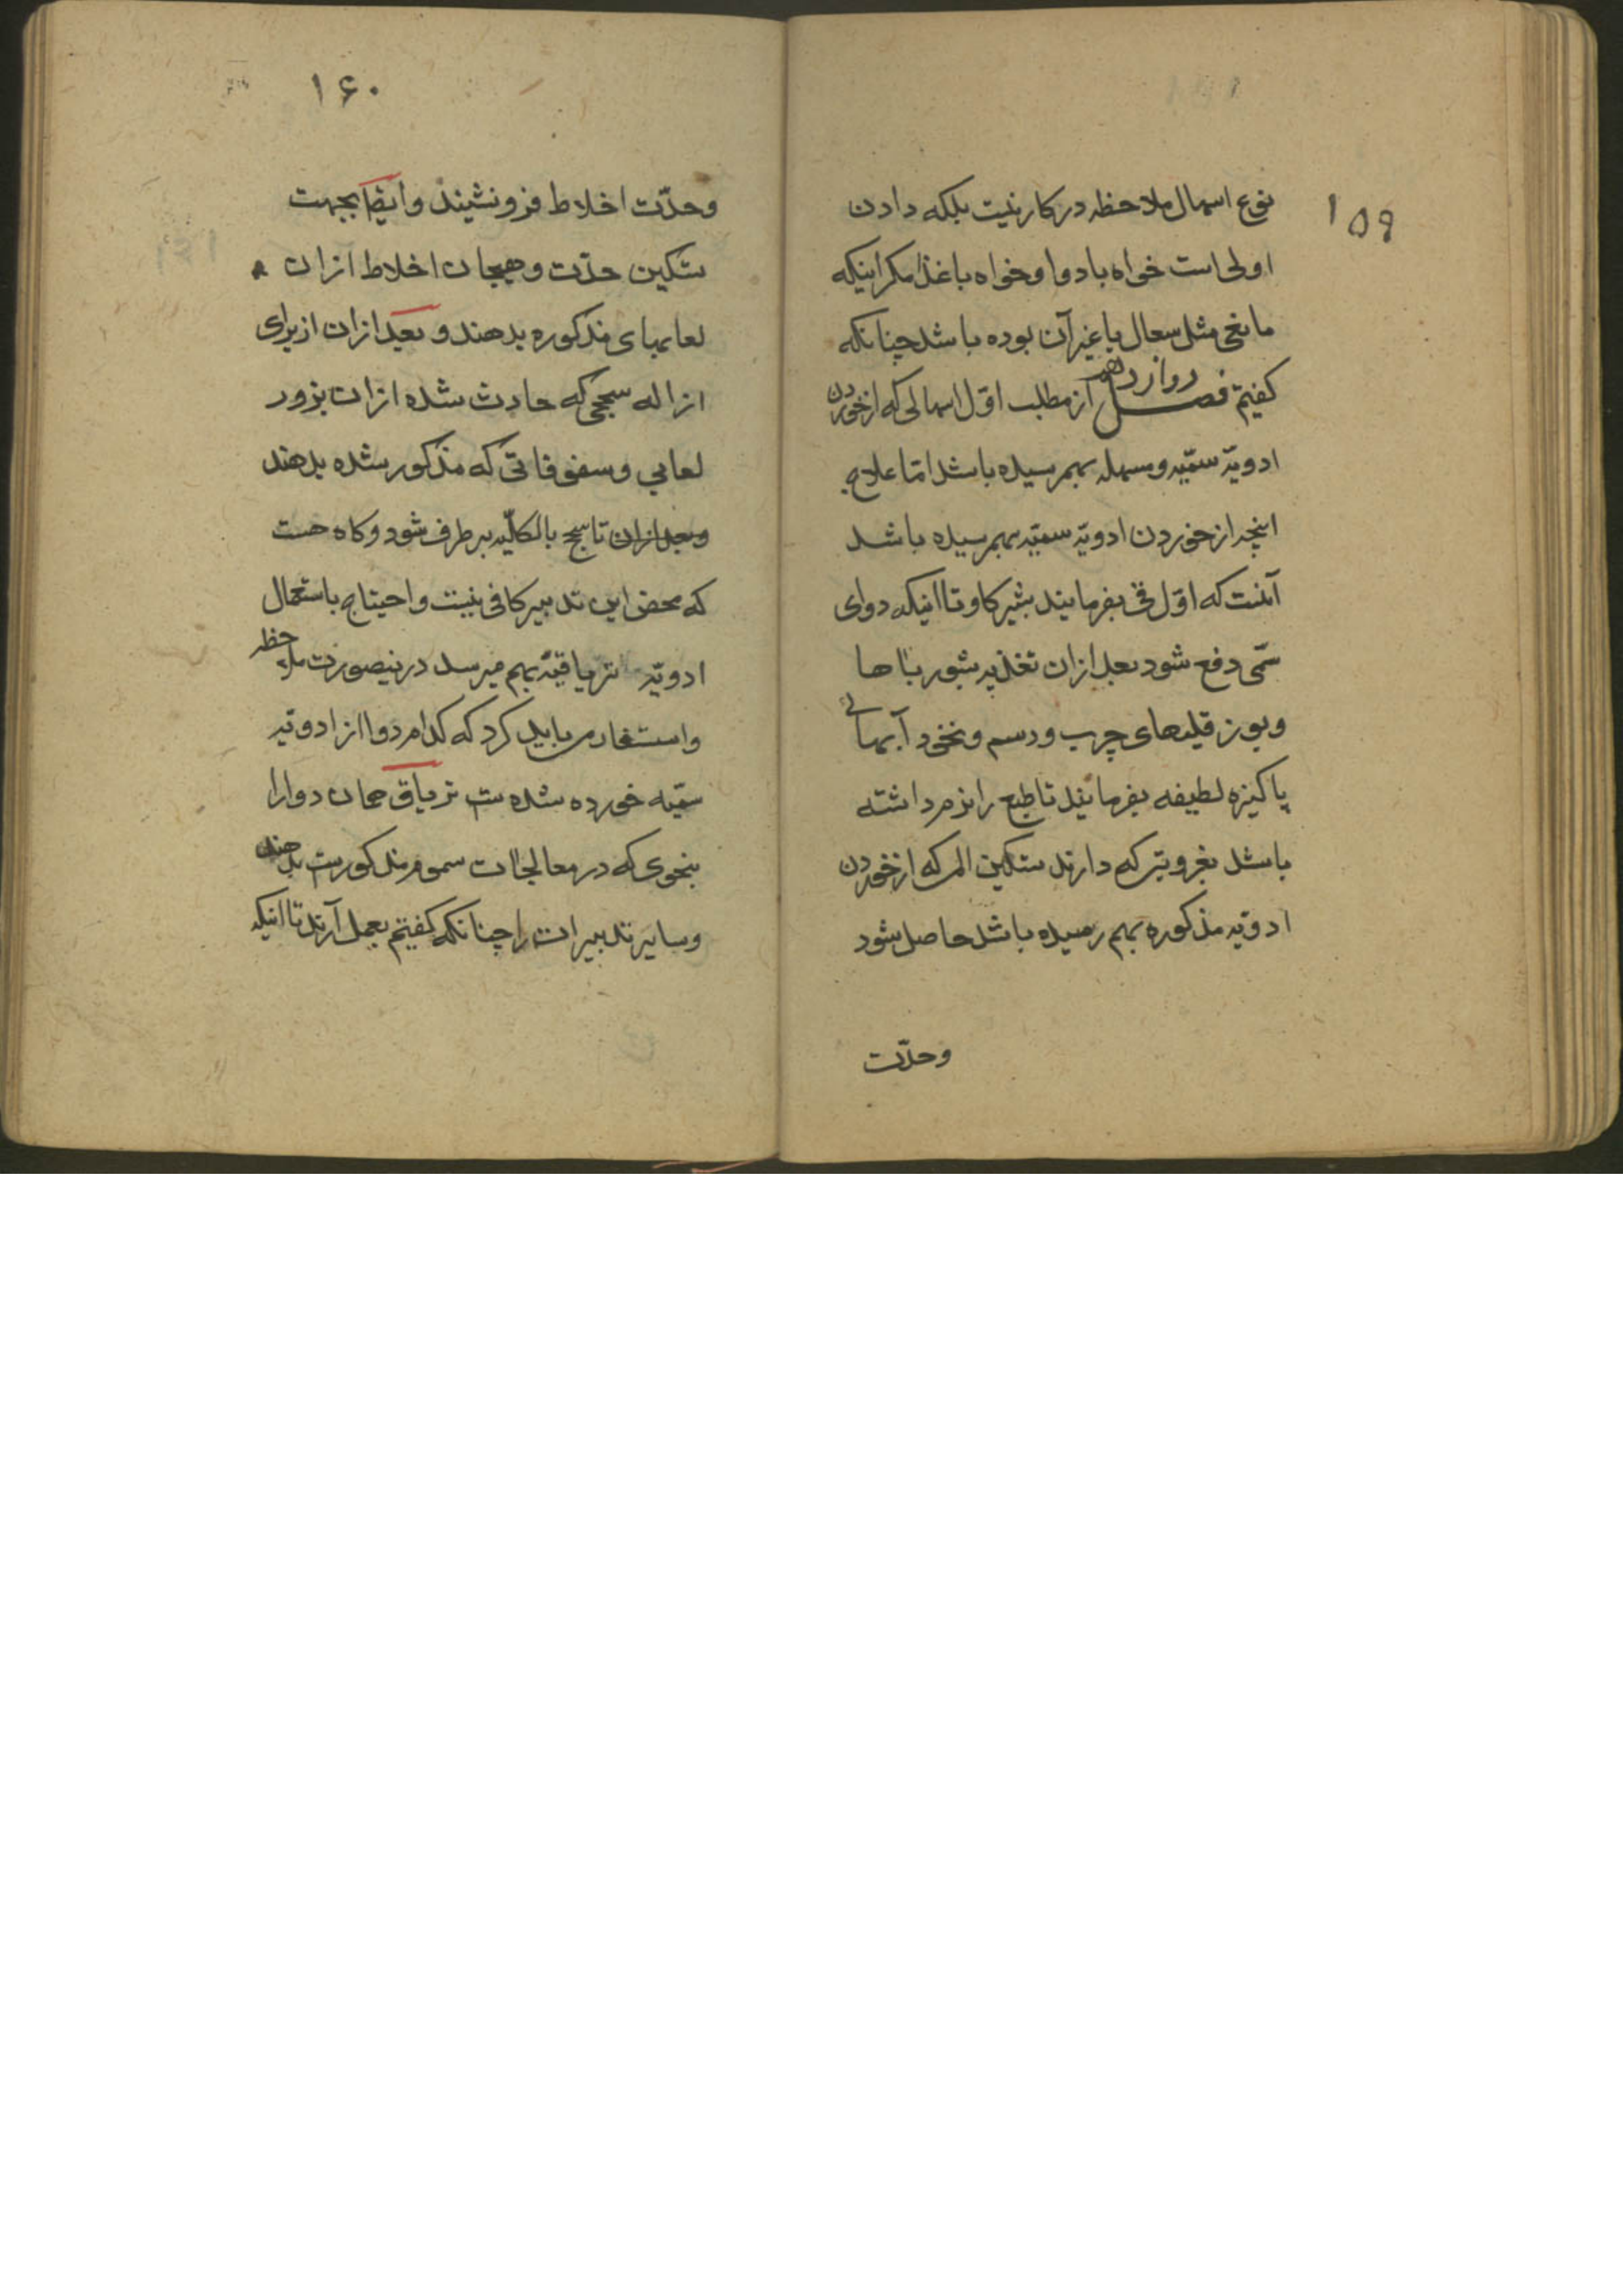 ۱۵۹
نوع اسهال ملاحظه در کار نیست بلکه دادن
اولی است خواه با دوا و خواه با غذا مکر اینکه
مانعی مثل سعال یا غیر آن بوده باشد چنانکه
کفتیم فصل دوازدهم از مطلب اوّل اسهالی که از خوردن
ادویّهٔ سمّیه و مسهله بهمرسیده باشد امّا علاج
اینچه از خوردن ادویّه سمیّه بهمرسیده باشد
آنست که اوّل قی بفرمایند بشیر کاو تا اینکه دوای
سمّی دفع شود بعد ازان تغذیه بشوربا ها
و بوز قلیهای چرب و دسم و نخود آبهای
پاکیزه لطیفه بفرمایند تا طبع را نرم داشته
باشد بغرویتی که دارند تسکین الم که از خوردن
ادویّه مذکوره بهم رسیده باشد حاصل شود
وحدّت
۱۶۰
وحدّت اخلاط فرو نشیند و ایضا بجهت
تسکین حدّت و هیجان اخلاط ازان
لعابهای مذکوره بدهند و بعد ازان از برای
ازاله سحجی که حادث شده ازان بزور
لعابی و سفوفاتی که مذکور شده بدهند
و بعد ازان تا سحج بالکلّیه بر طرف شود و کاه هست
که محض این تدبیر کافی نیست و احتیاج باستعمال
ادویّه تریاقیّه بهم میرسد درینصورت ملاحظه
و استفسار می باید کرد که کدام دوا از ادویّه
سمّیه خورده شده ست تریاق همان دوا را
بنحوی که در معالجات سموم مذکورست بدهند
و سایر تدبیرات را چنانکه کفتیم بعمل آرند تا اینکه